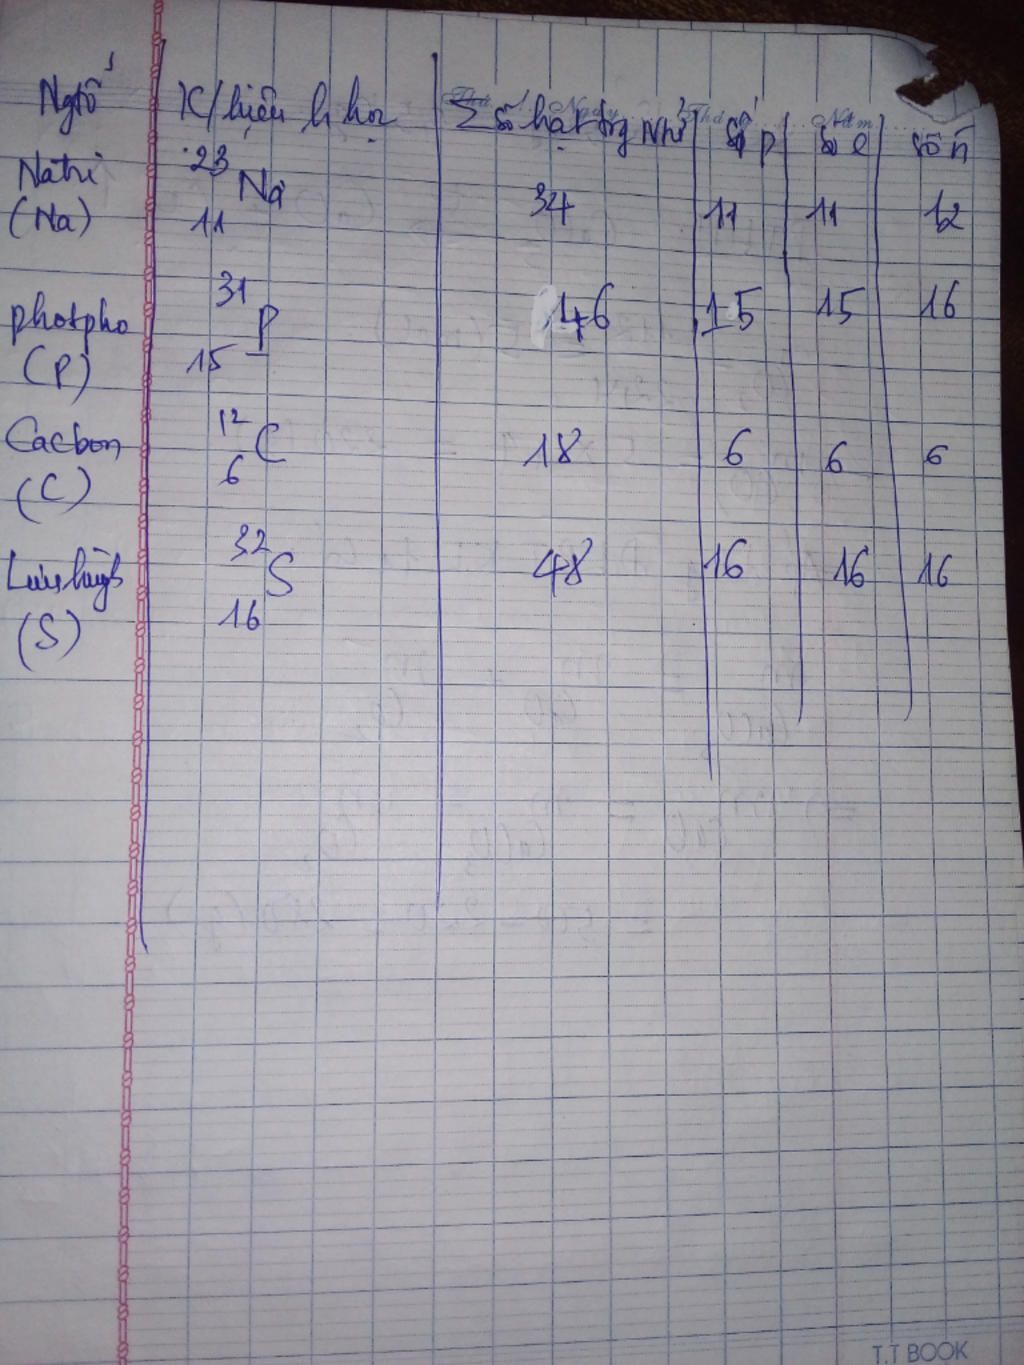 Ngtố K/hiệu h học Σ số hạt trg Nhí số p số e số n
Natri 23 Na 34 11 11 12
(Na) 11
photpho 31 P 146 15 15 16
(P) 15
Cacbon 12 C 18 6 6 6
(C) 6
Lưu huỳnh 32 S 48 16 16 16
(S) 16
T.T BOOK